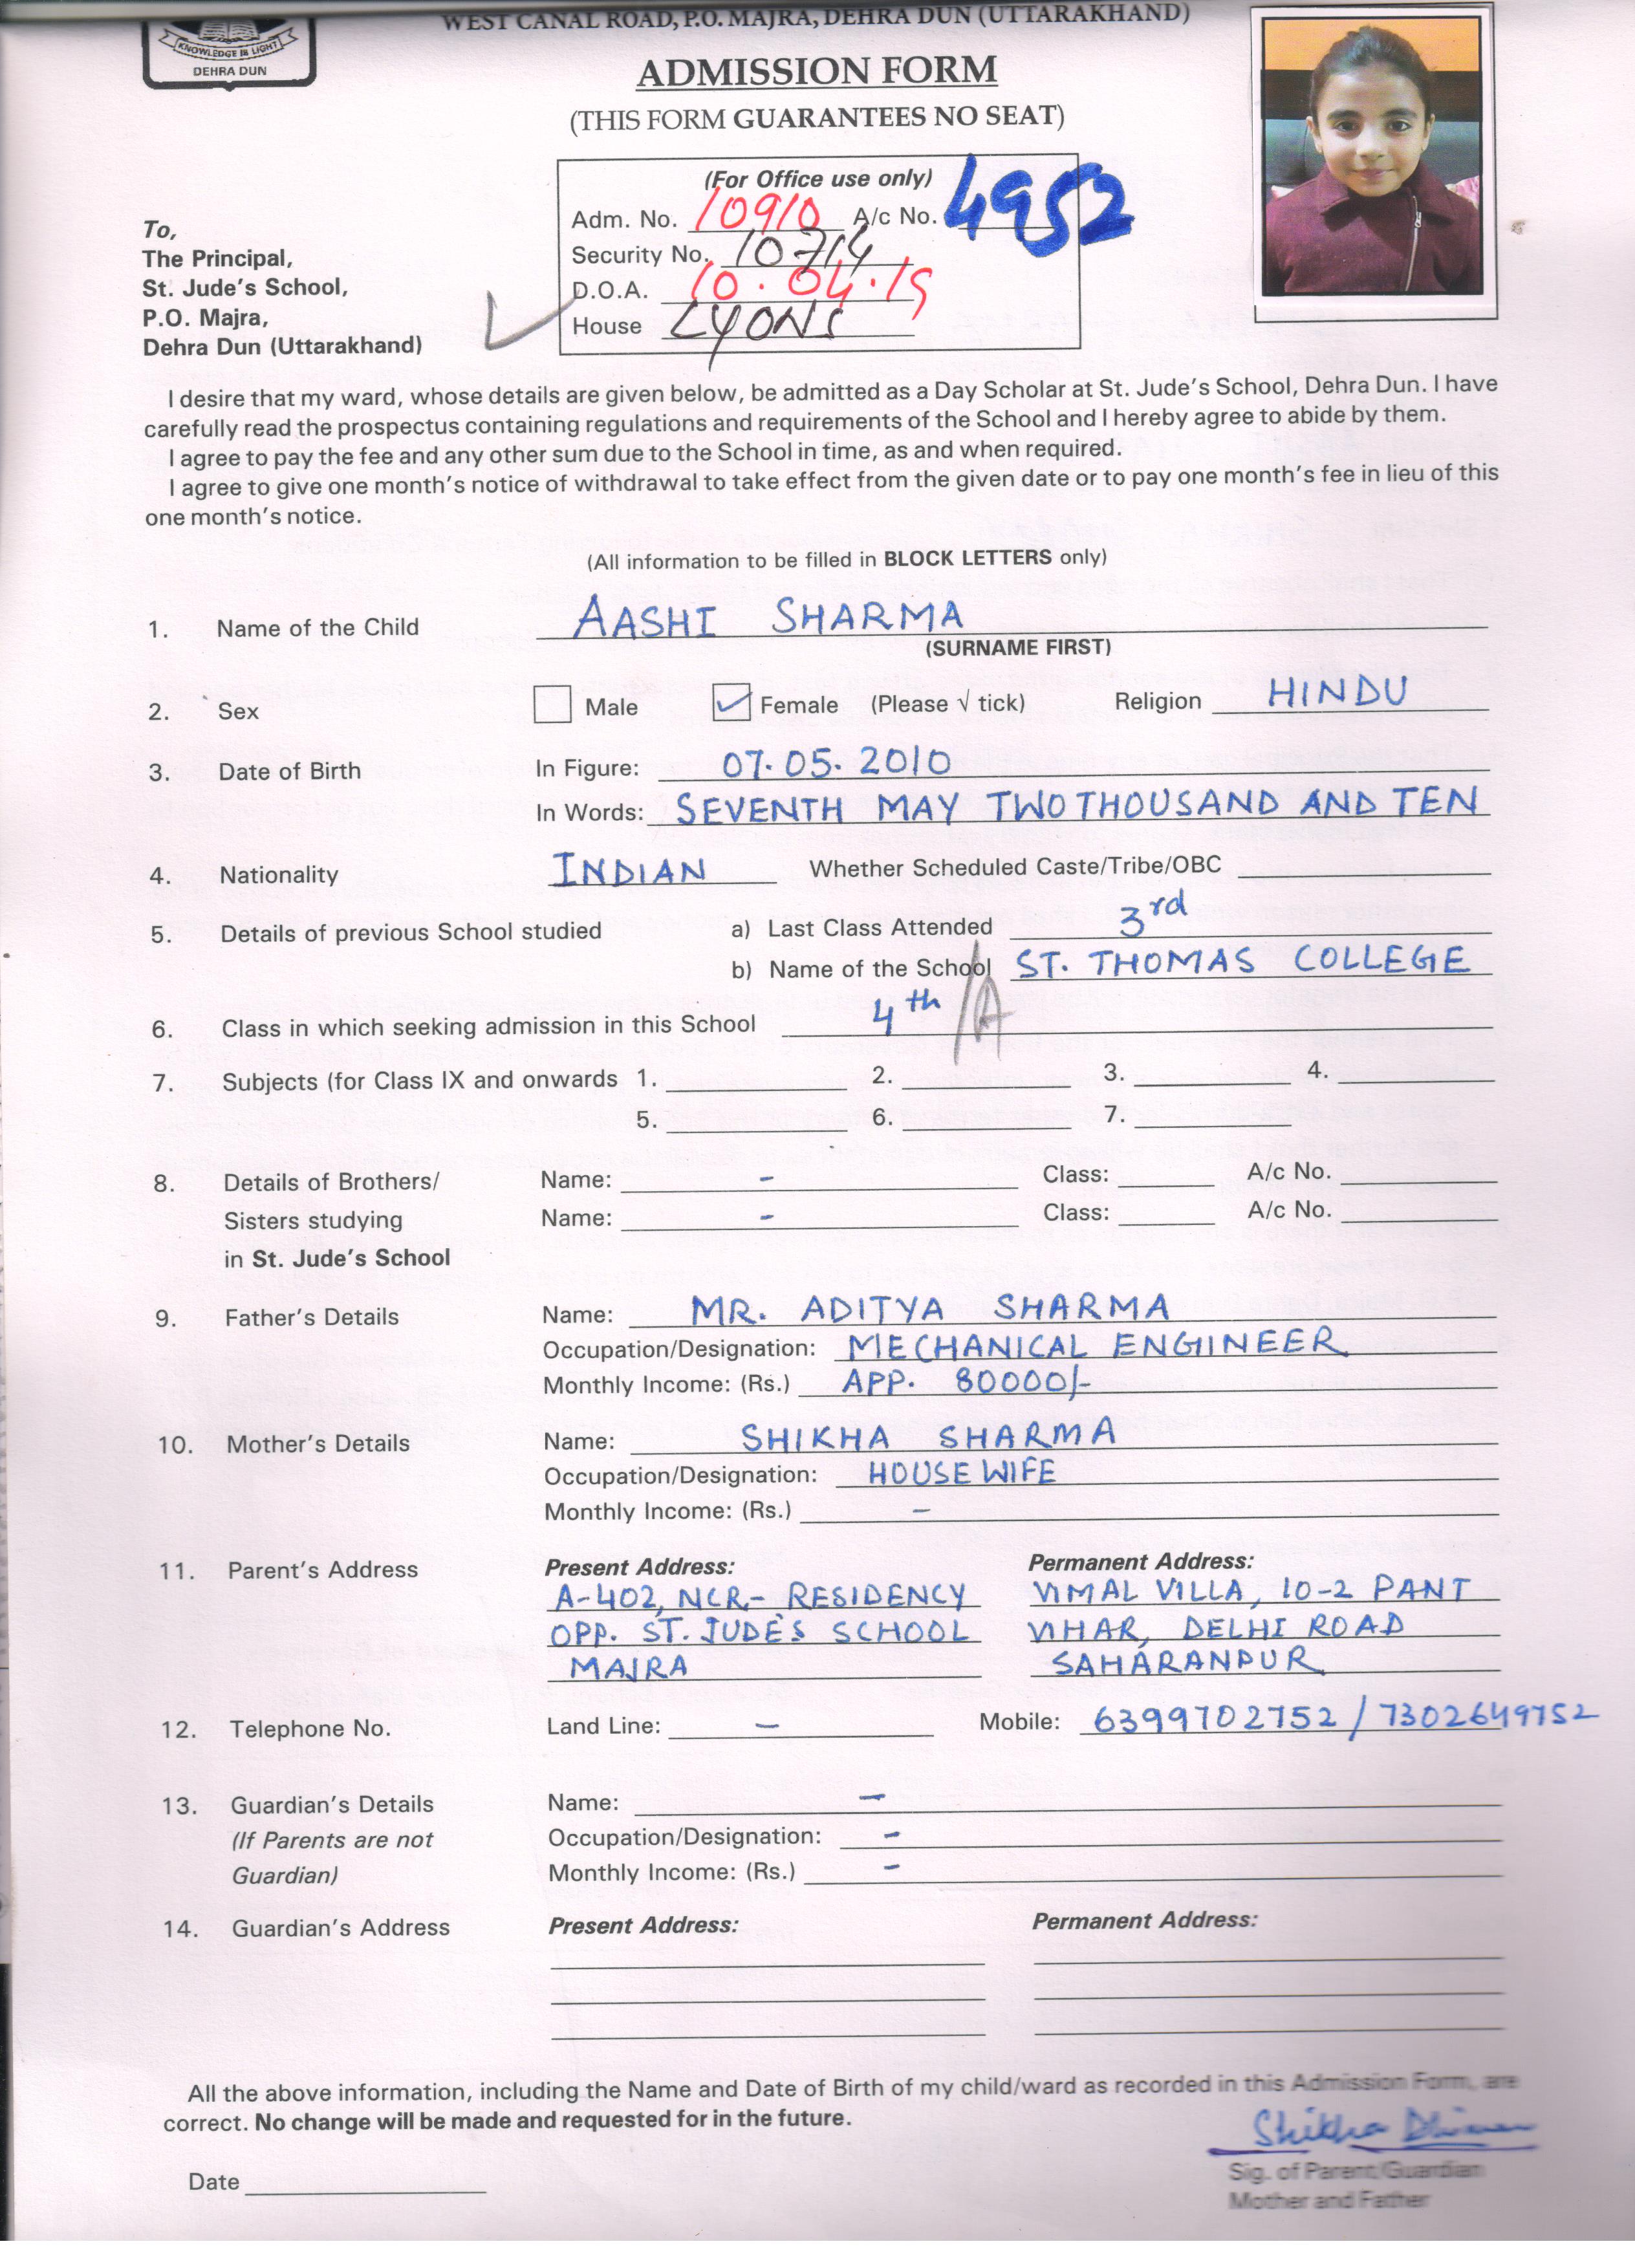 WEST CANAL ROAD, P.O. MAJRA, DEHRA DUN (UTTARAKHAND)
KNOWLEDGE IS LIGHT
DEHRA DUN
ADMISSION FORM
(THIS FORM GUARANTEES NO SEAT)
(For Office use only)
Adm. No. 10910 A/c No. 4952
Security No. 10714
D.O.A. 10.04.19
House LYONS
To,
The Principal,
St. Jude's School,
P.O. Majra,
Dehra Dun (Uttarakhand)
I desire that my ward, whose details are given below, be admitted as a Day Scholar at St. Jude's School, Dehra Dun. I have
carefully read the prospectus containing regulations and requirements of the School and I hereby agree to abide by them.
I agree to pay the fee and any other sum due to the School in time, as and when required.
I agree to give one month's notice of withdrawal to take effect from the given date or to pay one month's fee in lieu of this
one month's notice.
(All information to be filled in BLOCK LETTERS only)
1. Name of the Child AASHI SHARMA
(SURNAME FIRST)
2. Sex Male ✓ Female (Please √ tick) Religion HINDU
3. Date of Birth In Figure: 07.05.2010
In Words: SEVENTH MAY TWO THOUSAND AND TEN
4. Nationality INDIAN Whether Scheduled Caste/Tribe/OBC
5. Details of previous School studied a) Last Class Attended 3rd
b) Name of the School ST. THOMAS COLLEGE
6. Class in which seeking admission in this School 4th /A
7. Subjects (for Class IX and onwards 1. 2. 3. 4.
5. 6. 7.
8. Details of Brothers/ Name: - Class: A/c No.
Sisters studying Name: - Class: A/c No.
in St. Jude's School
9. Father's Details Name: MR. ADITYA SHARMA
Occupation/Designation: MECHANICAL ENGINEER
Monthly Income: (Rs.) APP. 80000/-
10. Mother's Details Name: SHIKHA SHARMA
Occupation/Designation: HOUSE WIFE
Monthly Income: (Rs.) -
11. Parent's Address Present Address: Permanent Address:
A-402, NCR- RESIDENCY VIMAL VILLA, 10-2 PANT
OPP. ST. JUDE'S SCHOOL VIHAR, DELHI ROAD
MAJRA SAHARANPUR
12. Telephone No. Land Line: - Mobile: 6399702752 / 7302649752
13. Guardian's Details Name: -
(If Parents are not Occupation/Designation: -
Guardian) Monthly Income: (Rs.) -
14. Guardian's Address Present Address: Permanent Address:
All the above information, including the Name and Date of Birth of my child/ward as recorded in this Admission Form, are
correct. No change will be made and requested for in the future.
Shikha
Date
Sig. of Parent/Guardian
Mother and Father